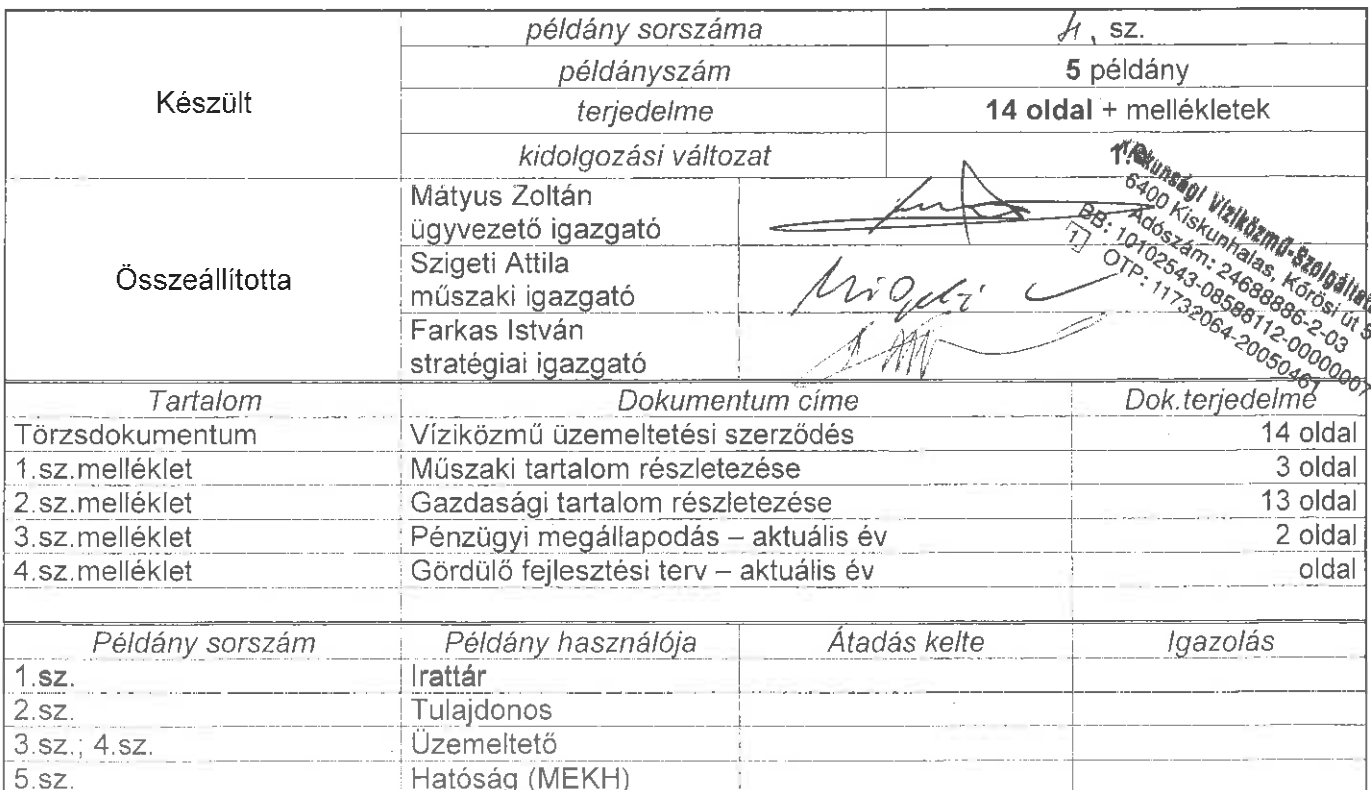 Készült
példány sorszáma
sz.
példányszám
5 példány
terjedelme
14 oldal + mellékletek
kidolgozási változat
1.
Összeállította
Mátyus Zoltán
ügyvezető igazgató
Szigeti Attila
műszaki igazgató
Farkas István
stratégiai igazgató
Kiskunsági Víziközmű-Szolgáltató
6400 Kiskunhalas, Kőrösi út 5
Adószám: 24688886-2-03
BB: 10102543-08588112-00000007
1 OTP: 11732064-20050461
Tartalom Dokumentum címe Dok.terjedelme
Törzsdokumentum Víziközmű üzemeltetési szerződés 14 oldal
1.sz.melléklet Műszaki tartalom részletezése 3 oldal
2.sz.melléklet Gazdasági tartalom részletezése 13 oldal
3.sz.melléklet Pénzügyi megállapodás – aktuális év 2 oldal
4.sz.melléklet Gördülő fejlesztési terv – aktuális év oldal
Példány sorszám Példány használója Átadás kelte Igazolás
1.sz. Irattár
2.sz. Tulajdonos
3.sz.; 4.sz. Üzemeltető
5.sz. Hatóság (MEKH)